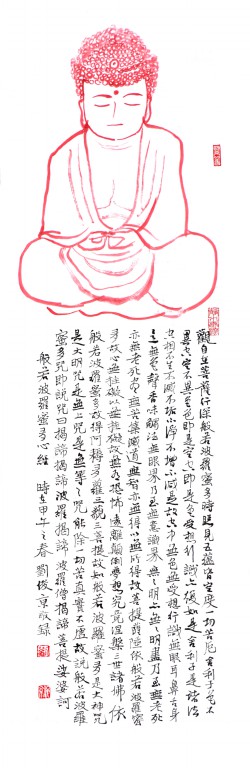 觀自在菩薩行深般若波羅蜜多時照見五蘊皆空度一切苦厄舍利子色不
異空空不異色色即是空空即是色受想行識亦復如是舍利子是諸法
空相不生不滅不垢不淨不增不減是故空中無色無受想行識無眼耳鼻舌身
意無色聲香味觸法無眼界乃至無意識界無無明亦無無明盡乃至無老死
亦無老死盡無苦集滅道無智亦無得以無所得故菩提薩陲依般若波羅蜜
多故心無罣礙無罣礙故無有恐怖遠離顛倒夢想究竟涅槃三世諸佛依
般若波羅蜜多故得阿耨多羅三藐三菩提故知般若波羅蜜多是大神咒
是大明咒是無上咒是無等等咒能除一切苦真實不虛故說般若波羅
蜜多咒即說咒曰揭諦揭諦波羅揭諦波羅僧揭諦菩提娑婆訶
般若波羅蜜多心經 時在甲午之春 劉俊京敬錄